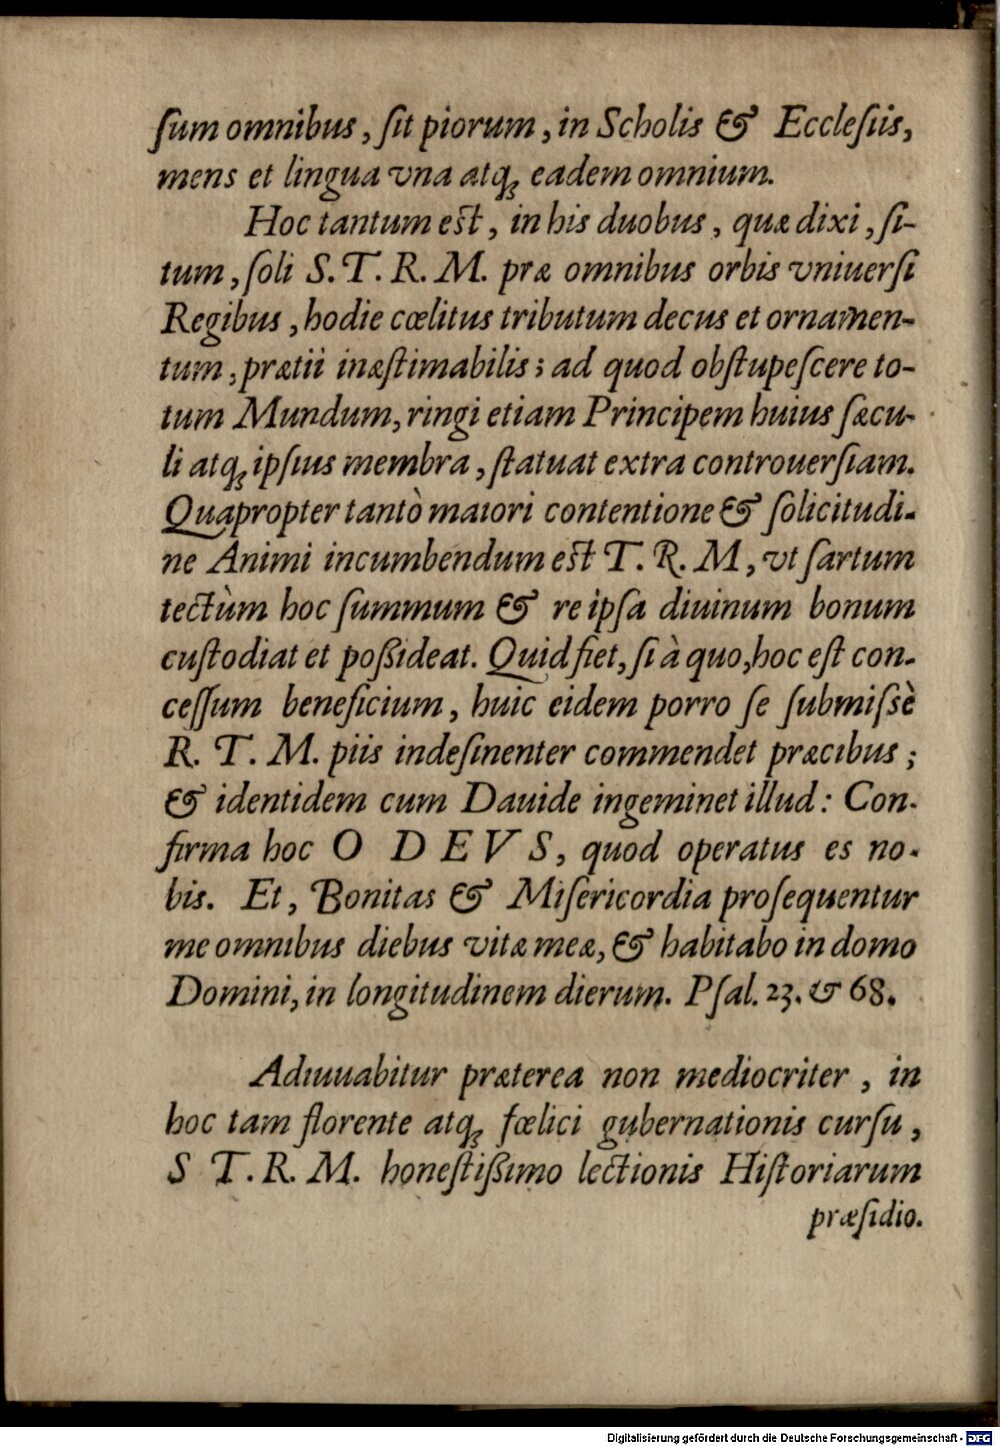 ſum omnibus, ſit piorum, in Scholis & Eccleſiis,
mens et lingua vna atq́ꝫ eadem omnium.
Hoc tantum eſt, in his duobus, quæ dixi, ſi-
tum, ſoli S. T. R. M. præ omnibus orbis vniuerſi
Regibus, hodie cœlitus tributum decus et ornamen-
tum, prætii inæſtimabilis; ad quod obſtupeſcere to-
tum Mundum, ringi etiam Principem huius ſæcu-
li atqꝫ ipſius membra, ſtatuat extra controuerſiam.
Quapropter tantò maiori contentione & ſolicitudi-
ne Animi incumbendum eſt T. R. M, vt ſartum
tectùm hoc ſummum & re ipſa diuinum bonum
cuſtodiat et poßideat. Quid fiet, ſi à quo, hoc eſt con-
ceſſum beneficium, huic eidem porro ſe ſubmiſsè
R. T. M. piis indeſinenter commendet præcibus;
& identidem cum Dauide ingeminet illud: Con-
firma hoc O DEVS, quod operatus es no-
bis. Et, Bonitas & Miſericordia proſequentur
me omnibus diebus vitæ meæ, & habitabo in domo
Domini, in longitudinem dierum. Pſal. 23. & 68.
Adiuuabitur præterea non mediocriter, in
hoc tam florente atqꝫ fœlici gubernationis curſu,
S T. R. M. honeſtißimo lectionis Hiſtoriarum
præſidio.
Digitalisierung gefördert durch die Deutsche Forschungsgemeinschaft - DFG